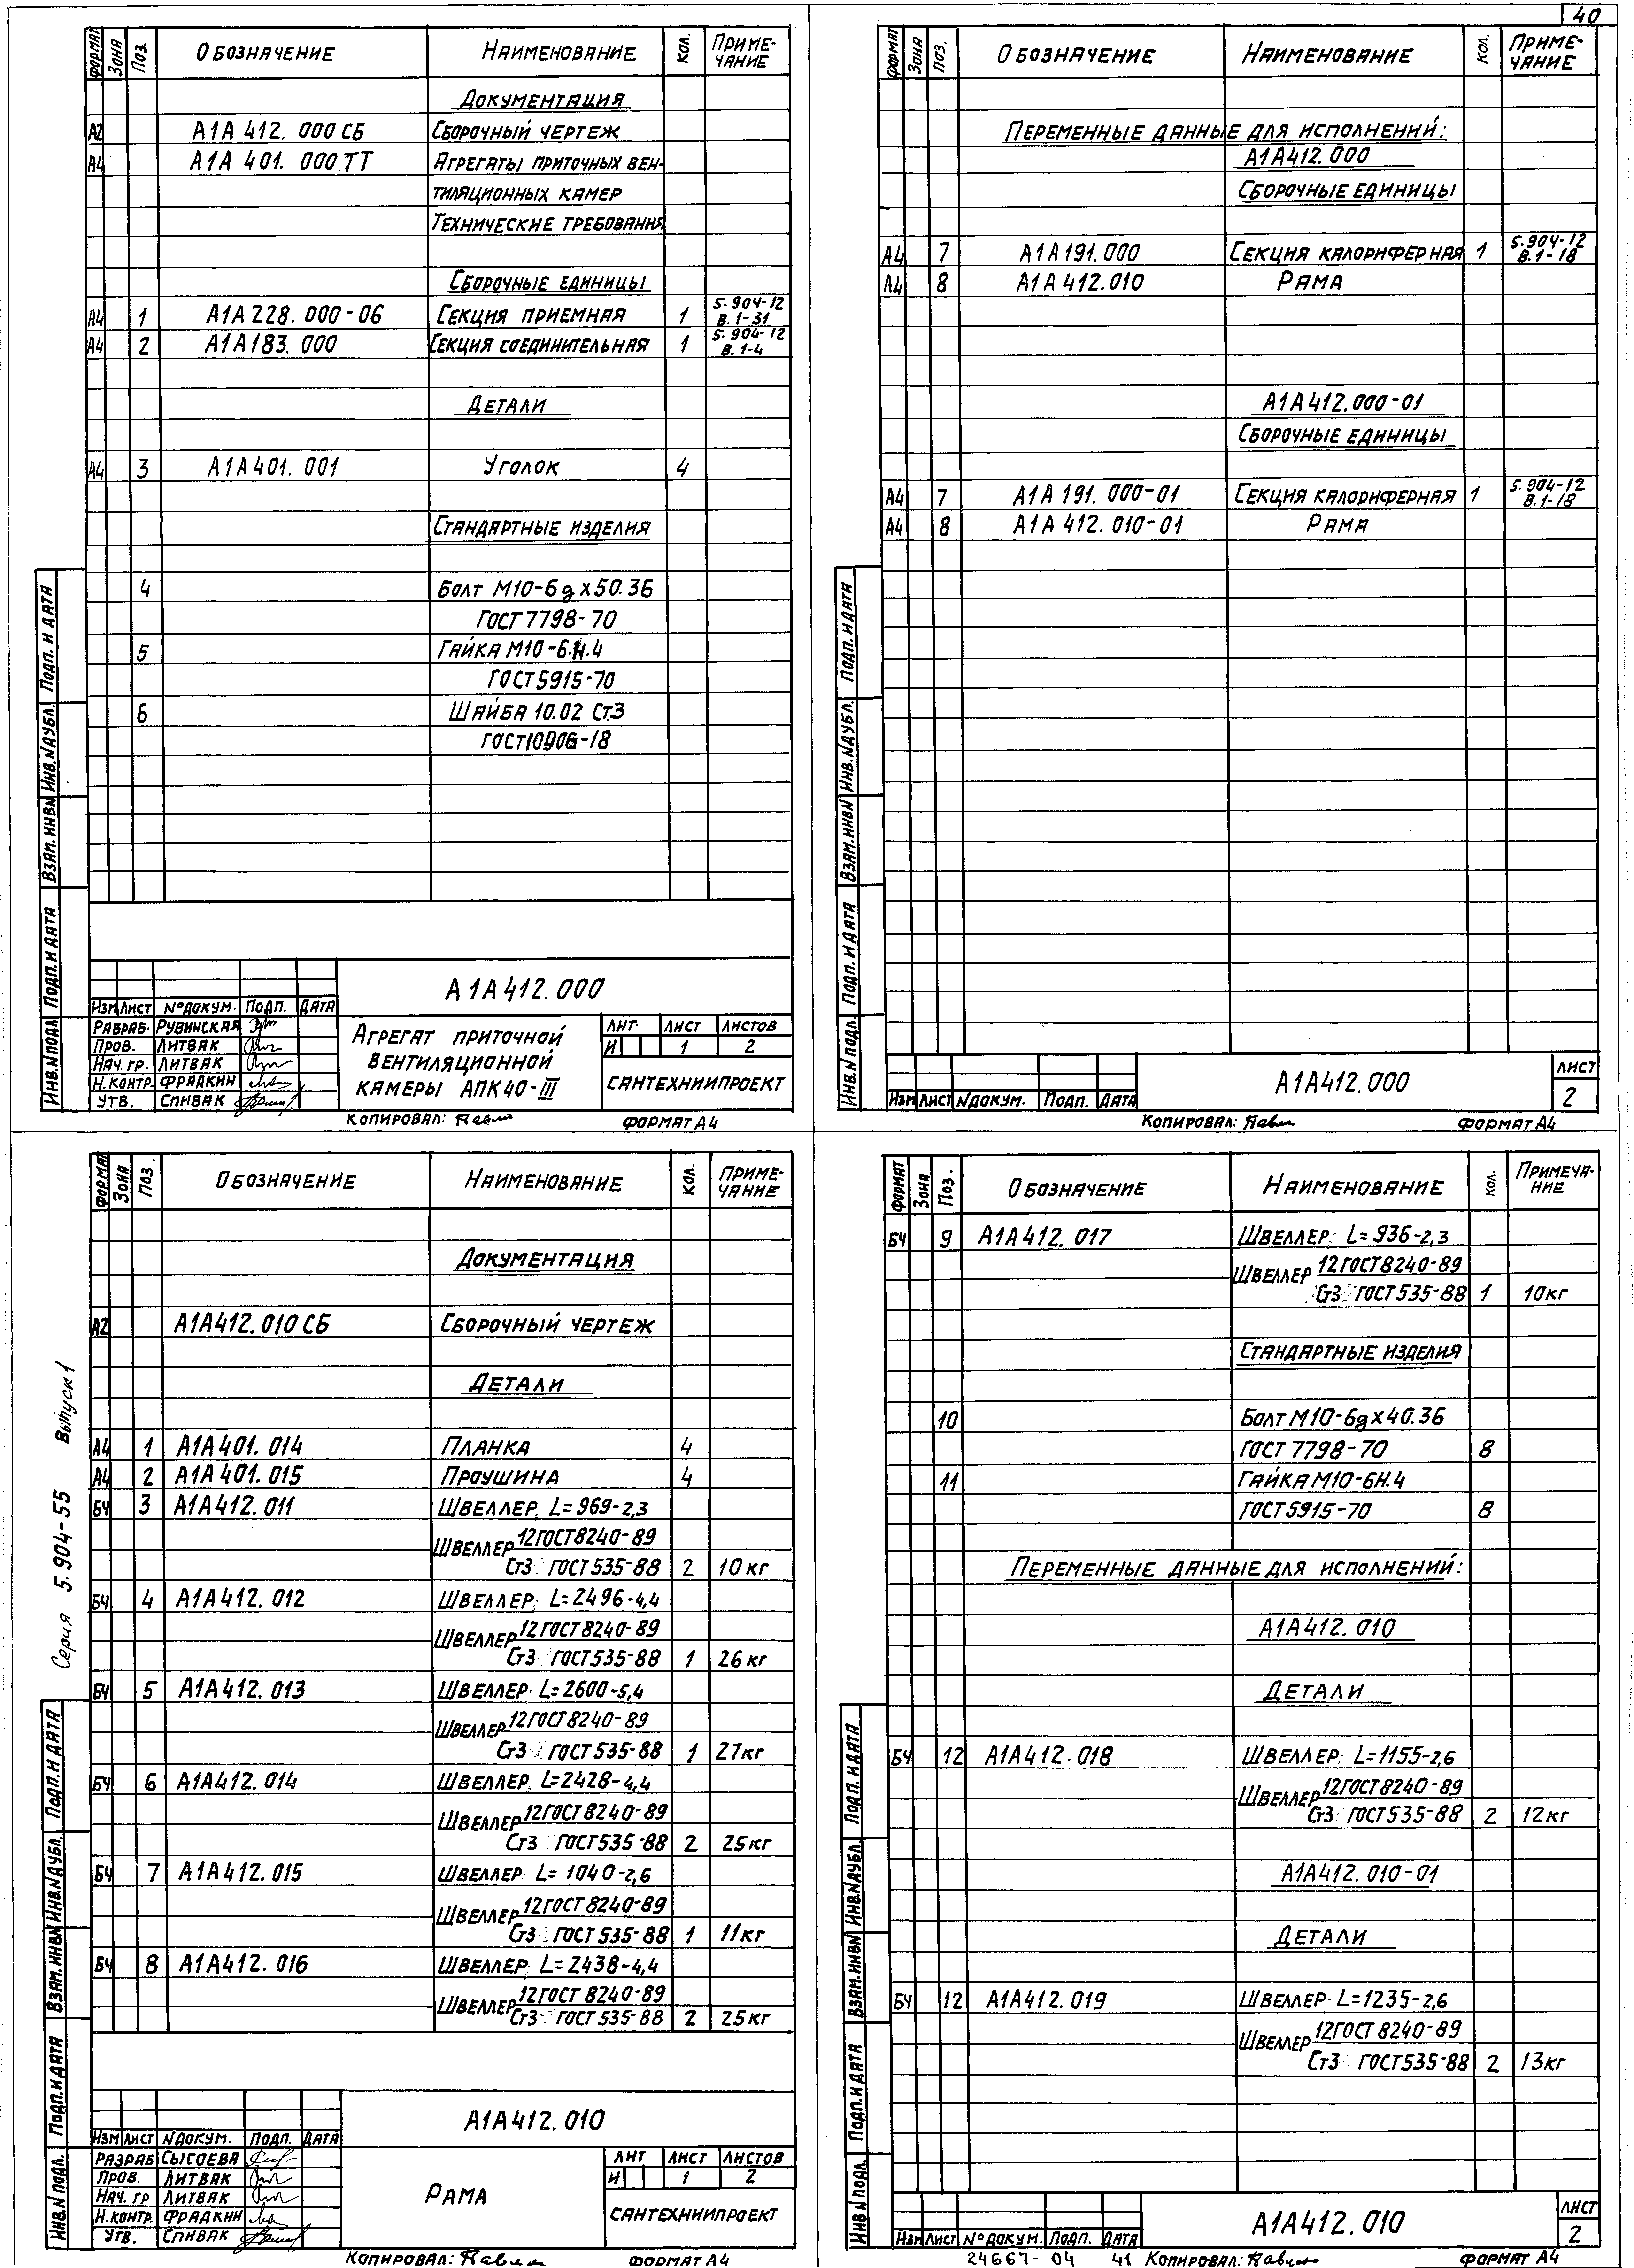 40
ФОРМАТ ЗОНА Поз. ОБОЗНАЧЕНИЕ НАИМЕНОВАНИЕ КОЛ. ПРИМЕ-
ЧАНИЕ
ДОКУМЕНТАЦИЯ
А2 А1А 412. 000 СБ СБОРОЧНЫЙ ЧЕРТЕЖ
А4 А1А 401. 000 ТТ АГРЕГАТЫ ПРИТОЧНЫХ ВЕН-
ТИЛЯЦИОННЫХ КАМЕР
ТЕХНИЧЕСКИЕ ТРЕБОВАНИЯ
СБОРОЧНЫЕ ЕДИНИЦЫ
А4 1 А1А 228. 000-06 СЕКЦИЯ ПРИЕМНАЯ 1 5.904-12
В.1-31
А4 2 А1А183. 000 СЕКЦИЯ СОЕДИНИТЕЛЬНАЯ 1 5.904-12
В.1-4
ДЕТАЛИ
А4 3 А1А401. 001 УГОЛОК 4
СТАНДАРТНЫЕ ИЗДЕЛИЯ
4 БОЛТ М10-6gх50.36
ГОСТ 7798-70
5 ГАЙКА М10-6.Н.4
ГОСТ5915-70
6 ШАЙБА 10.02 Ст.3
ИЗМ ЛИСТ №ДОКУМ. ПОДП. ДАТА
РАЗРАБ. РУВИНСКАЯ
ПРОВ. ЛИТВАК
НАЧ. ГР. ЛИТВАК
Н.КОНТР. ФРАДКИН
УТВ. СПИВАК
А1А412.000
АГРЕГАТ ПРИТОЧНОЙ
ВЕНТИЛЯЦИОННОЙ
КАМЕРЫ АПК40-III
ЛИТ. ЛИСТ ЛИСТОВ
И 1 2
САНТЕХНИИПРОЕКТ
КОПИРОВАЛ: ФОРМАТ А4
ИНВ.N ПОДЛ. ПОДП. И ДАТА ВЗАМ. ИНВ N ИНВ. N ДУБЛ. ПОДП. И ДАТА
ФОРМАТ ЗОНА ПОЗ. ОБОЗНАЧЕНИЕ НАИМЕНОВАНИЕ КОЛ. ПРИМЕ-
ЧАНИЕ
ПЕРЕМЕННЫЕ ДАННЫЕ ДЛЯ ИСПОЛНЕНИЙ:
А1А412.000
СБОРОЧНЫЕ ЕДИНИЦЫ
А4 7 А1А191.000 СЕКЦИЯ КАЛОРИФЕРНАЯ 1 5.904-12
В.1-18
А4 8 А1А 412.010 РАМА
А1А412.000-01
СБОРОЧНЫЕ ЕДИНИЦЫ
А4 7 А1А 191. 000-01 СЕКЦИЯ КАЛОРИФЕРНАЯ 1 5.904-12
В.1-18
А4 8 А1А 412. 010-01 РАМА
ИЗМ ЛИСТ NДОКУМ. ПОДП. ДАТА
А1А412.000
ЛИСТ
2
КОПИРОВАЛ: ФОРМАТ А4
ИНВ.N ПОДЛ. ПОДП. И ДАТА ВЗАМ. ИНВ N ИНВ. N ДУБЛ. ПОДП. И ДАТА
ФОРМАТ ЗОНА ПОЗ. ОБОЗНАЧЕНИЕ НАИМЕНОВАНИЕ КОЛ. ПРИМЕ-
ЧАНИЕ
ДОКУМЕНТАЦИЯ
А2 А1А412.010 СБ СБОРОЧНЫЙ ЧЕРТЕЖ
ДЕТАЛИ
А4 1 А1А401. 014 ПЛАНКА 4
А4 2 А1А401. 015 ПРОУШИНА 4
БЧ 3 А1А412. 011 ШВЕЛЛЕР L=969-2,3
ШВЕЛЛЕР 12ГОСТ8240-89
Ст3 ГОСТ535-88 2 10кг
БЧ 4 А1А412. 012 ШВЕЛЛЕР L=2496-4,4
ШВЕЛЛЕР 12ГОСТ8240-89
Ст3 ГОСТ535-88 1 26кг
БЧ 5 А1А412. 013 ШВЕЛЛЕР L=2600-5,4
ШВЕЛЛЕР 12ГОСТ8240-89
Ст3 ГОСТ535-88 1 27кг
БЧ 6 А1А412. 014 ШВЕЛЛЕР L=2428-4,4
ШВЕЛЛЕР 12ГОСТ8240-89
Ст3 ГОСТ535-88 2 25кг
БЧ 7 А1А412. 015 ШВЕЛЛЕР L=1040-2,6
ШВЕЛЛЕР 12ГОСТ8240-89
Ст3 ГОСТ535-88 1 11кг
БЧ 8 А1А412. 016 ШВЕЛЛЕР L=2438-4,4
ШВЕЛЛЕР 12ГОСТ8240-89
Ст3 ГОСТ535-88 2 25кг
Серия 5.904-55 Выпуск 1
ИЗМ ЛИСТ NДОКУМ. ПОДП. ДАТА
РАЗРАБ СЫСОЕВА
ПРОВ. ЛИТВАК
НАЧ. ГР ЛИТВАК
Н.КОНТР. ФРАДКИН
УТВ. СПИВАК
А1А412.010
РАМА
ЛИТ ЛИСТ ЛИСТОВ
И 1 2
САНТЕХНИИПРОЕКТ
КОПИРОВАЛ: ФОРМАТ А4
ИНВ.N ПОДЛ. ПОДП. И ДАТА ВЗАМ. ИНВ N ИНВ. N ДУБЛ. ПОДП. И ДАТА
ФОРМАТ ЗОНА ПОЗ. ОБОЗНАЧЕНИЕ НАИМЕНОВАНИЕ КОЛ. ПРИМЕЧА-
НИЕ
БЧ 9 А1А412. 017 ШВЕЛЛЕР L=936-2,3
ШВЕЛЛЕР 12ГОСТ8240-89
Ст3 ГОСТ535-88 1 10кг
СТАНДАРТНЫЕ ИЗДЕЛИЯ
10 БОЛТ М10-6gх40.36
ГОСТ 7798-70 8
11 ГАЙКА М10-6Н.4
ГОСТ5915-70 8
ПЕРЕМЕННЫЕ ДАННЫЕ ДЛЯ ИСПОЛНЕНИЙ:
А1А412. 010
ДЕТАЛИ
БЧ 12 А1А412. 018 ШВЕЛЛЕР L=1155-2,6
ШВЕЛЛЕР 12ГОСТ8240-89
Ст3 ГОСТ535-88 2 12кг
А1А412.010-01
ДЕТАЛИ
БЧ 12 А1А412. 019 ШВЕЛЛЕР L=1235-2,6
ШВЕЛЛЕР 12ГОСТ8240-89
Ст3 ГОСТ535-88 2 13кг
ИЗМ ЛИСТ №ДОКУМ. ПОДП. ДАТА
А1А412.010
ЛИСТ
2
24667-04 41 КОПИРОВАЛ: ФОРМАТ А4
ИНВ.N ПОДЛ. ПОДП. И ДАТА ВЗАМ. ИНВ N ИНВ. N ДУБЛ. ПОДП. И ДАТА